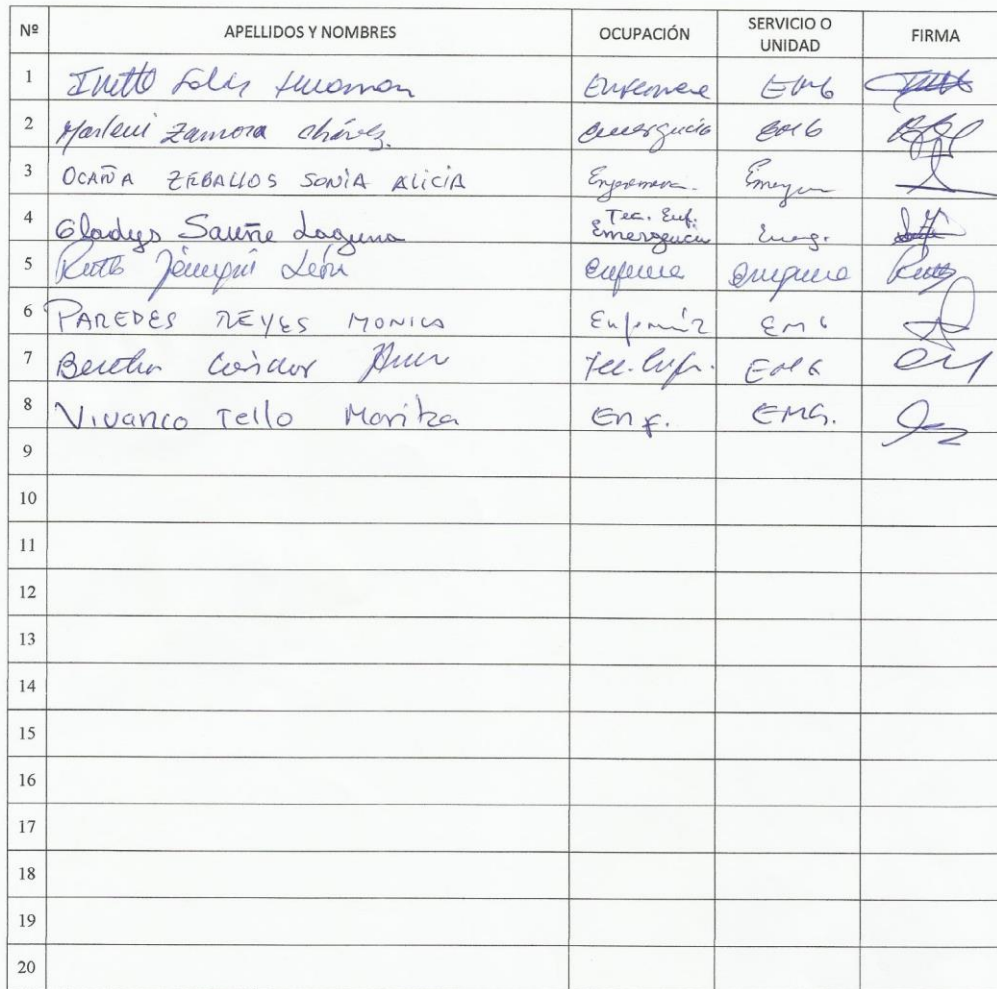 Nº APELLIDOS Y NOMBRES OCUPACIÓN SERVICIO O UNIDAD FIRMA
1 Ivetto Solis Huaman Enfermera EMG
2 Marleni Zamora Chávez. emergencia EMG
3 OCAÑA ZEBALLOS SONIA ALICIA Enfermera.
4 Gladys Sauñe Laguna Tec. Enf. Emergencia Emerg.
5 Ruth León
6 PAREDES REYES MONICA EMG
7 Bertha Cóndor Tec. Enf. EMG
8 Vivanco Tello Moritza Enf. EMG.
9
10
11
12
13
14
15
16
17
18
19
20